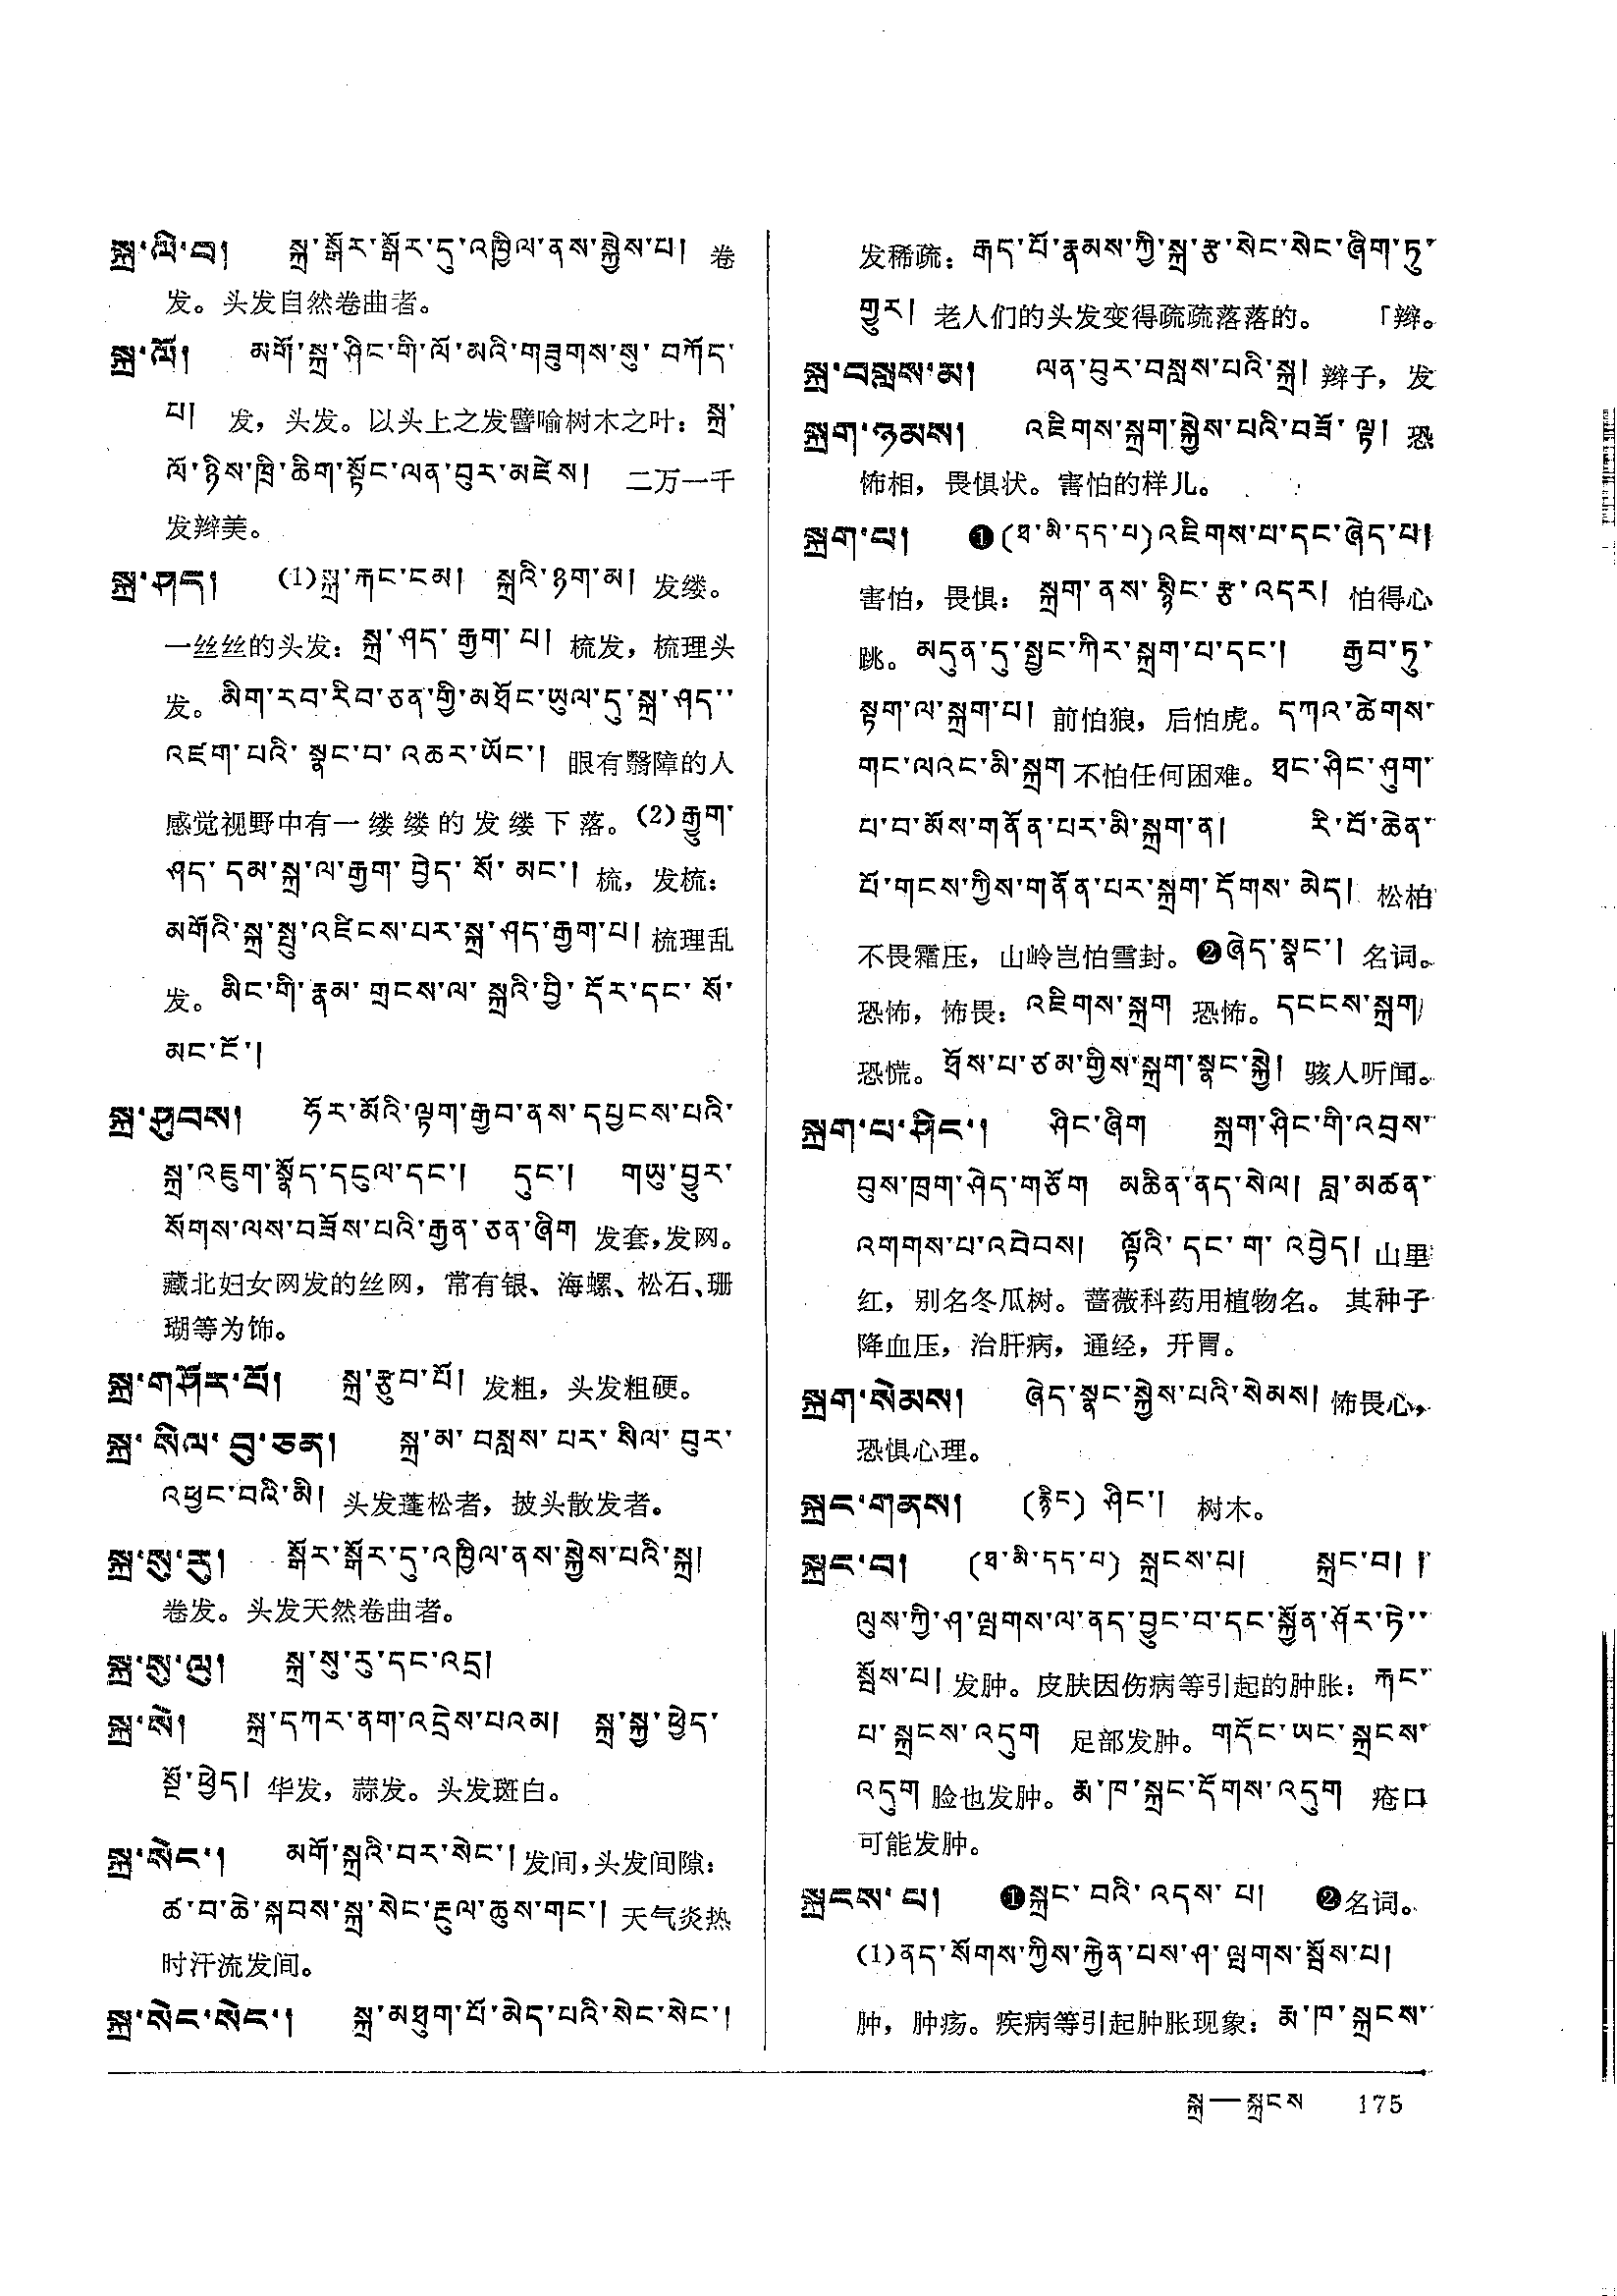 སྐྲ་ལི་བ། སྐྲ་སྒོར་སྒོར་དུ་འཁྱིལ་ནས་སྐྱེས་པ། 卷
发。头发自然卷曲者。
སྐྲ་ལོ། མགོ་སྐྲ་ཤིང་གི་ལོ་མའི་གཟུགས་སུ་བཀོད་
པ། 发，头发。以头上之发譬喻树木之叶：སྐྲ་
ལོ་ཉིས་ཁྲི་ཆིག་སྟོང་ལན་བུར་མཛེས། 二万一千
发辫美。
སྐྲ་ཤད། (1)སྐྲ་རྐང་ངམ། སྐྲའི་ཉག་མ། 发缕。
一丝丝的头发：སྐྲ་ཤད་རྒྱག་པ། 梳发，梳理头
发。མིག་རབ་རིབ་ཅན་གྱི་མཐོང་ཡུལ་དུ་སྐྲ་ཤད་་
འཛག་པའི་སྣང་བ་འཆར་ཡོང་། 眼有翳障的人
感觉视野中有一缕缕的发缕下落。(2)རྒྱུག་
ཤད་དམ་སྐྲ་ལ་རྒྱག་བྱེད་སོ་མང་། 梳，发梳：
མགོའི་སྐྲ་སྤུ་འཛིངས་པར་སྐྲ་ཤད་རྒྱག་པ། 梳理乱
发。མིང་གི་རྣམ་གྲངས་ལ་སྐྲའི་བྱི་དོར་དང་སོ་
མང་ངོ་།
སྐྲ་ཤུབས། ཧོར་མོའི་ལྟག་རྒྱབ་ནས་དཔྱངས་པའི་
སྐྲ་འཇུག་སྣོད་དངུལ་དང་། དུང་། གཡུ་བྱུར་
སོགས་ལས་བཟོས་པའི་རྒྱན་ཅན་ཞིག 发套，发网。
藏北妇女网发的丝网，常有银、海螺、松石、珊
瑚等为饰。
སྐྲ་གཤོར་པོ། སྐྲ་རྩུབ་པོ། 发粗，头发粗硬。
སྐྲ་སིལ་བུ་ཅན། སྐྲ་མ་བསླས་པར་སིལ་བུར་
འཕྱང་བའི་མི། 头发蓬松者，披头散发者。
སྐྲ་སུ་རུ། སྒོར་སྒོར་དུ་འཁྱིལ་ནས་སྐྱེས་པའི་སྐྲ།
卷发。头发天然卷曲者。
སྐྲ་སུ་ལུ། སྐྲ་སུ་རུ་དང་འདྲ།
སྐྲ་སེ། སྐྲ་དཀར་ནག་འདྲེས་པའམ། སྐྲ་སྐྱ་ཕྱེད་
སྔོ་ཕྱེད། 华发，蒜发。头发斑白。
སྐྲ་སེང་། མགོ་སྐྲའི་བར་སེང་། 发间，头发间隙：
ཚ་བ་ཆེ་སྐབས་སྐྲ་སེང་རྔུལ་ཆུས་གང་། 天气炎热
时汗流发间。
སྐྲ་སེང་སེང་། སྐྲ་མཐུག་པོ་མེད་པའི་སེང་སེང་།
发稀疏：རྒད་པོ་རྣམས་ཀྱི་སྐྲ་རྩ་སེང་སེང་ཞིག་ཏུ་
གྱུར། 老人们的头发变得疏疏落落的。 「辫。
སྐྲ་བསླས་མ། ལན་བུར་བསླས་པའི་སྐྲ། 辫子，发
སྐྲག་ཉམས། འཇིགས་སྐྲག་སྐྱེས་པའི་བཟོ་ལྟ། 恐
怖相，畏惧状。害怕的样儿。
སྐྲག་པ། ❶(ཐ་མི་དད་པ)འཇིགས་པ་དང་ཞེད་པ།
害怕，畏惧：སྐྲག་ནས་སྙིང་རྩ་འདར། 怕得心
跳。མདུན་དུ་སྤྱང་ཀིར་སྐྲག་པ་དང་། རྒྱབ་ཏུ་
སྟག་ལ་སྐྲག་པ། 前怕狼，后怕虎。དཀའ་ཚེགས་
གང་ལའང་མི་སྐྲག 不怕任何困难。ཐང་ཤིང་ཤུག་
པ་བ་མོས་གནོན་པར་མི་སྐྲག་ན། རི་བོ་ཆེན་
པོ་གངས་ཀྱིས་གནོན་པར་སྐྲག་དོགས་མེད། 松柏
不畏霜压，山岭岂怕雪封。❷ཞེད་སྣང་། 名词。
恐怖，怖畏：འཇིགས་སྐྲག 恐怖。དངངས་སྐྲག
恐慌。ཐོས་པ་ཙམ་གྱིས་སྐྲག་སྣང་སྐྱེ། 骇人听闻。
སྐྲག་པ་ཤིང་། ཤིང་ཞིག སྐྲག་ཤིང་གི་འབྲས་
བུས་ཁྲག་ཤེད་གཅོག མཆིན་ནད་སེལ། ཟླ་མཚན་
འགགས་པ་འབེབས། ལྟོའི་དང་ག་འབྱེད། 山里
红，别名冬瓜树。蔷薇科药用植物名。其种子
降血压，治肝病，通经，开胃。
སྐྲག་སེམས། ཞེད་སྣང་སྐྱེས་པའི་སེམས། 怖畏心，
恐惧心理。
སྐྲང་གནས། (རྙིང) ཤིང་། 树木。
སྐྲང་བ། (ཐ་མི་དད་པ) སྐྲངས་པ། སྐྲང་བ། །
ལུས་ཀྱི་ཤ་ལྤགས་ལ་ནད་བྱུང་བ་དང་སྐྱོན་ཤོར་ཏེ་་
སྦོས་པ། 发肿。皮肤因伤病等引起的肿胀：རྐང་
པ་སྐྲངས་འདུག 足部发肿。གདོང་ཡང་སྐྲངས་
འདུག 脸也发肿。རྨ་ཁ་སྐྲང་དོགས་འདུག 疮口
可能发肿。
སྐྲངས་པ། ❶སྐྲང་བའི་འདས་པ། ❷名词。
(1)ནད་སོགས་ཀྱིས་རྐྱེན་པས་ཤ་ལྤགས་སྦོས་པ།
肿，肿疡。疾病等引起肿胀现象：རྨ་ཁ་སྐྲངས་
སྐྲ—སྐྲངས 175